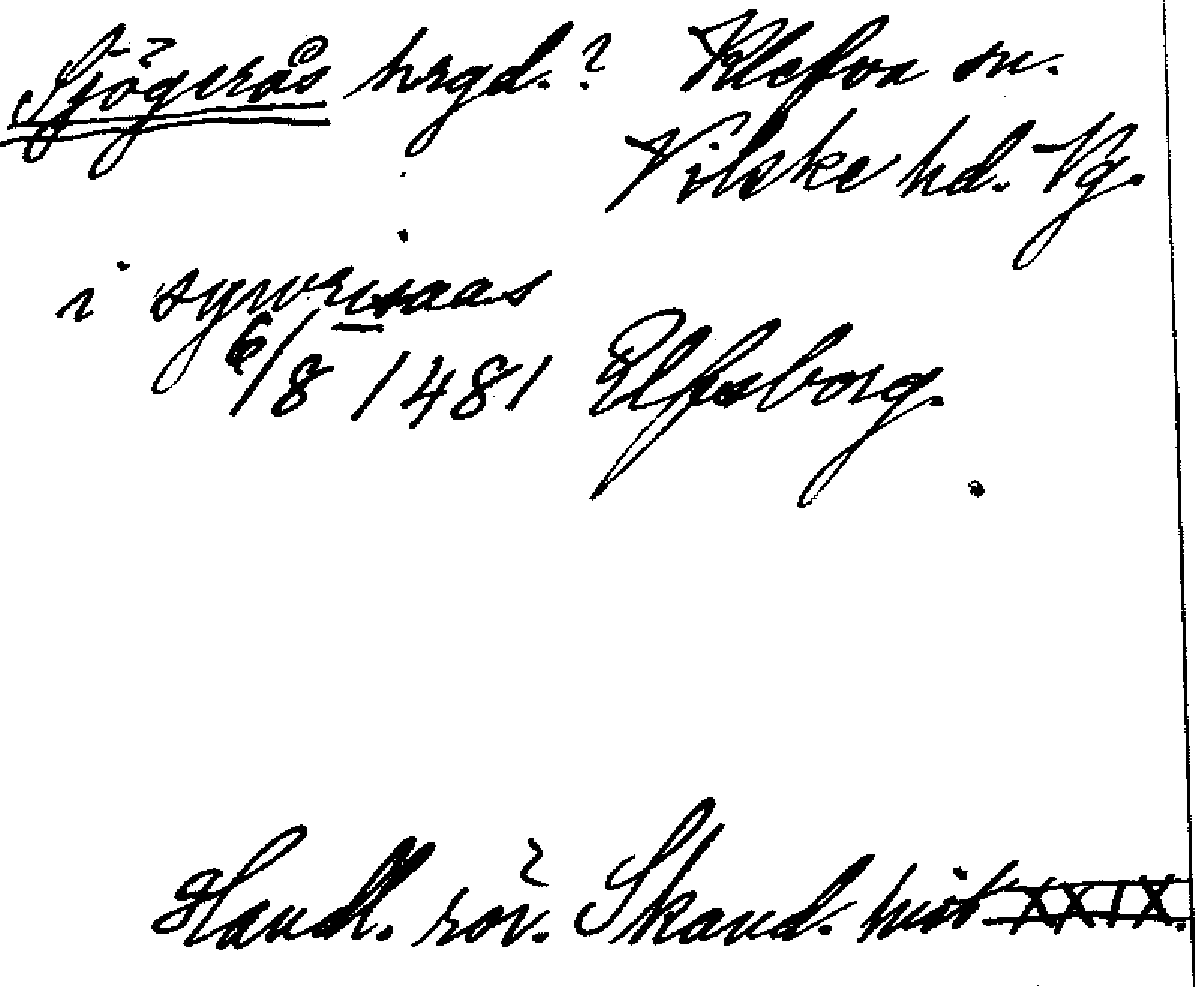 Sjögerås hrgd.? Klefva sn.
Vilske hd. Vg.
i syworisaas
6/8 1481 Elfsborg.
Handl. rör. Skand. hist XXIX.